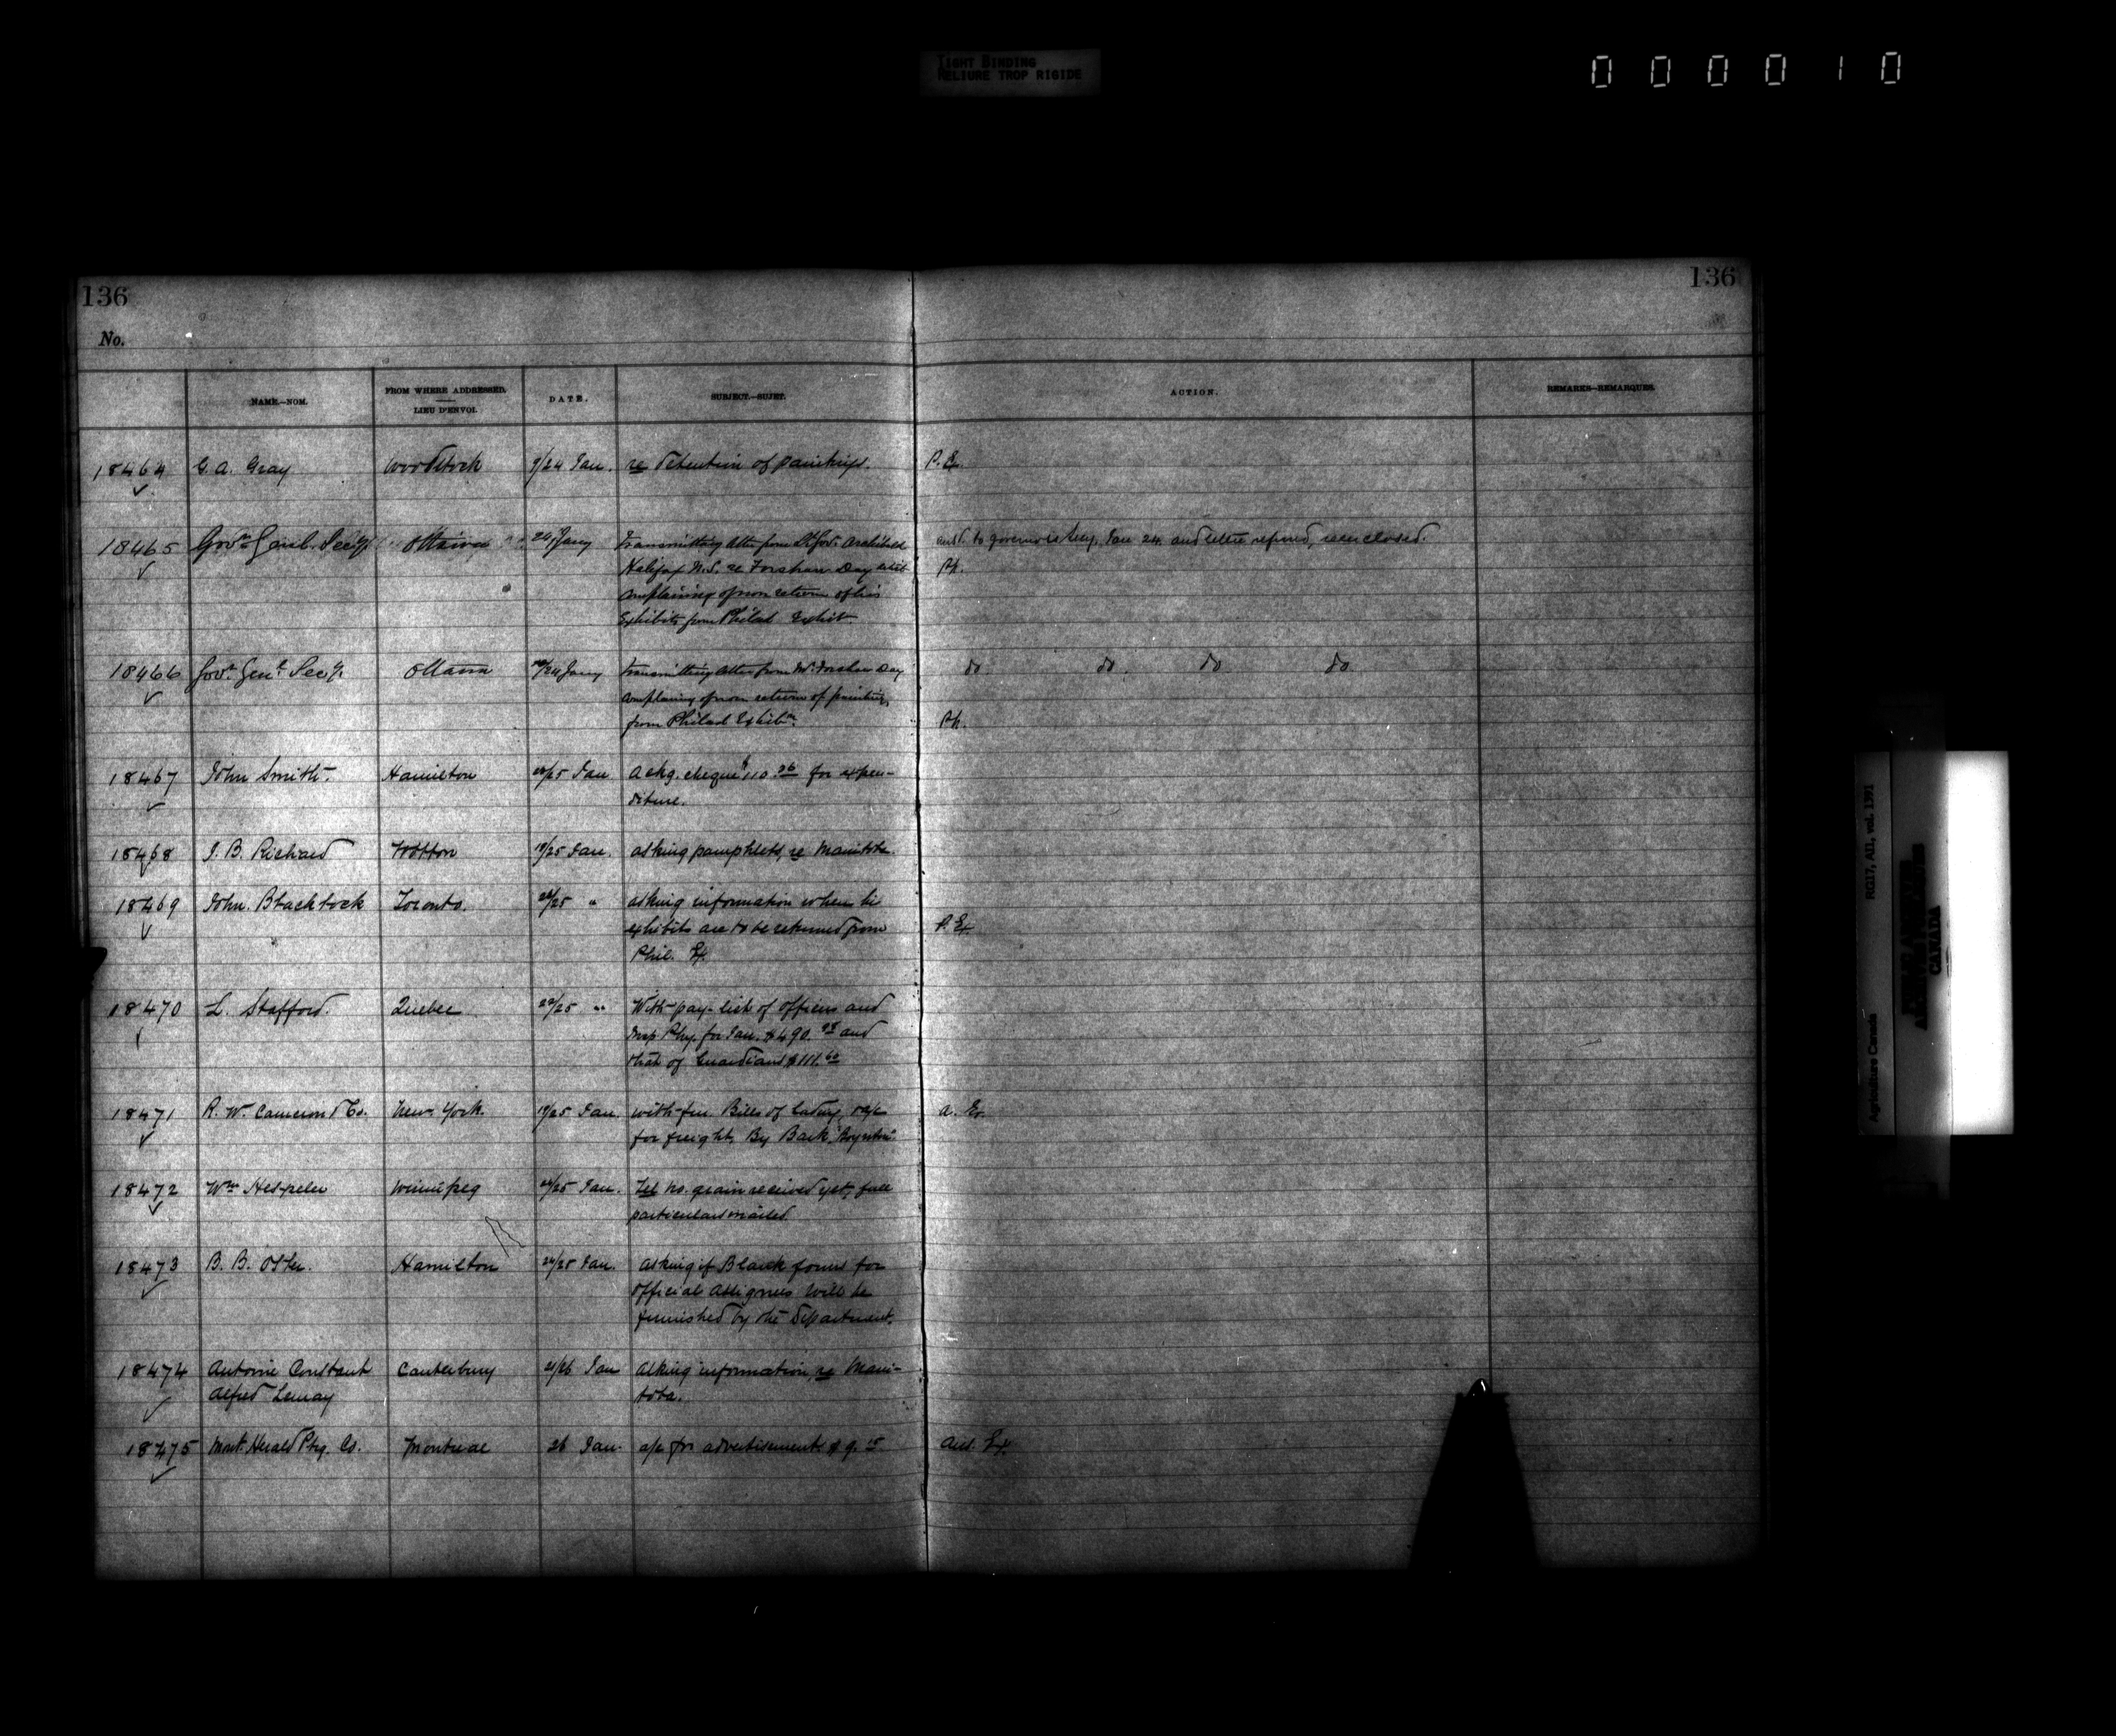 TIGHT BINDING
RELIURE TROP RIGIDE
000010
136
136
No.
NAME.—NOM.
FROM WHERE ADDRESSED.
LIEU D'ENVOI.
DATE.
SUBJECT.—SUJET.
ACTION.
REMARKS—REMARQUES.
18464 G. A. Gray Woodstock 9/24 Jan. re detention of paintings. P. Ex.
18465 Govr Genl. Secy Ottawa 24 Jany transmitting letter from Lt Govr Archibald ansd. to governor's Secy, Jan 24. and letter refused, reenclosed.
Halifax N.S. re Forshaw Day
complaining of non return of his
Exhibits from Philad Exhibt
18466 Govr Genl Secy. Ottawa /24 Jany transmitting letter from Mr. Forshaw Day do do. do do
complaing of non return of paintings
from Philad Exhibn.
18467 John Smith. Hamilton /25 Jan Ackg. cheque $110. for expen-
diture.
18468 J. B. Richard Wotton 19/25 Jan. asking pamphlets, re Manitoba.
18469 John. Blacklock Toronto. /25 " asking information when his
exhibits are to be returned from P. Ex.
Phil. Ex.
18470 L. Stafford. Quebec 22/25 " With pay-list of officers and
Insp Phy. for Jan. $490. and
that of Guardians $111.60
18471 R. W. Cameron & Co. New York. 19/25 Jan. with five Bills of lading, & a/c a. Ex.
for freight, By Bark "Boynton".
18472 Wm Hespeler Winnipeg /25 Jan. Tel no. grain received yet, full
particulars mailed.
18473 B. B. Osler. Hamilton 24/25 Jan. asking if Blank forms for
official assignees will be
furnished by the Department.
18474 Antoine Constant Canterbury 21/26 Jan asking information, re Mani-
Alfred Lemay toba.
18475 Mont. Herald Ptg. Co. Montreal 26 Jan. a/c for advertisement $9.15 Aus. Ex.
RG17, AII, vol. 1391
Agriculture Canada
CANADA